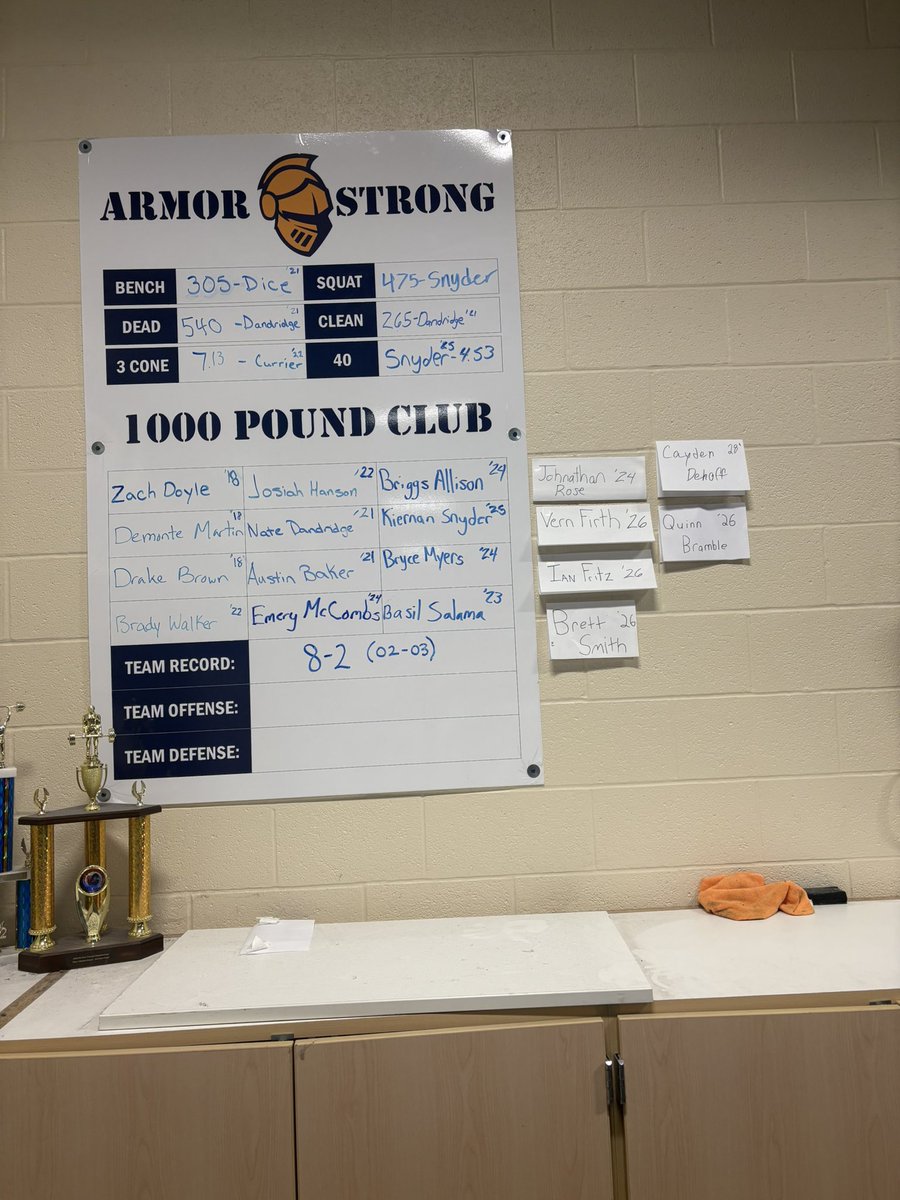 ARMOR STRONG
BENCH 305-Dice '21 SQUAT 475-Snyder
DEAD 540 -Dandridge '21 CLEAN 265-Dandridge '21
3 CONE 7.13 - Currier '22 40 Snyder '25 - 4.53
1000 POUND CLUB
Zach Doyle '18 Josiah Hanson '22 Briggs Allison '24
Demonte Martin '18 Nate Dandridge '21 Kiernan Snyder '25
Drake Brown '18 Austin Baker '21 Bryce Myers '24
Brady Walker '22 Emery McCombs '24 Basil Salama '23
TEAM RECORD: 8-2 (02-03)
TEAM OFFENSE:
TEAM DEFENSE:
Johnathan '24
Rose
Vern Firth '26
Ian Fritz '26
Brett '26
Smith
Cayden 28'
Dehoff
Quinn '26
Bramble